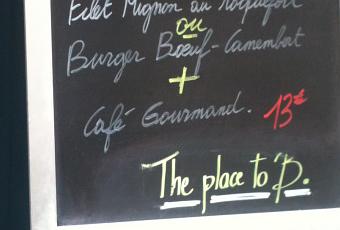 Filet Mignon au roquefort
ou
Burger Bœuf-Camembert
+
Café Gourmand. 13€
The place to'P.